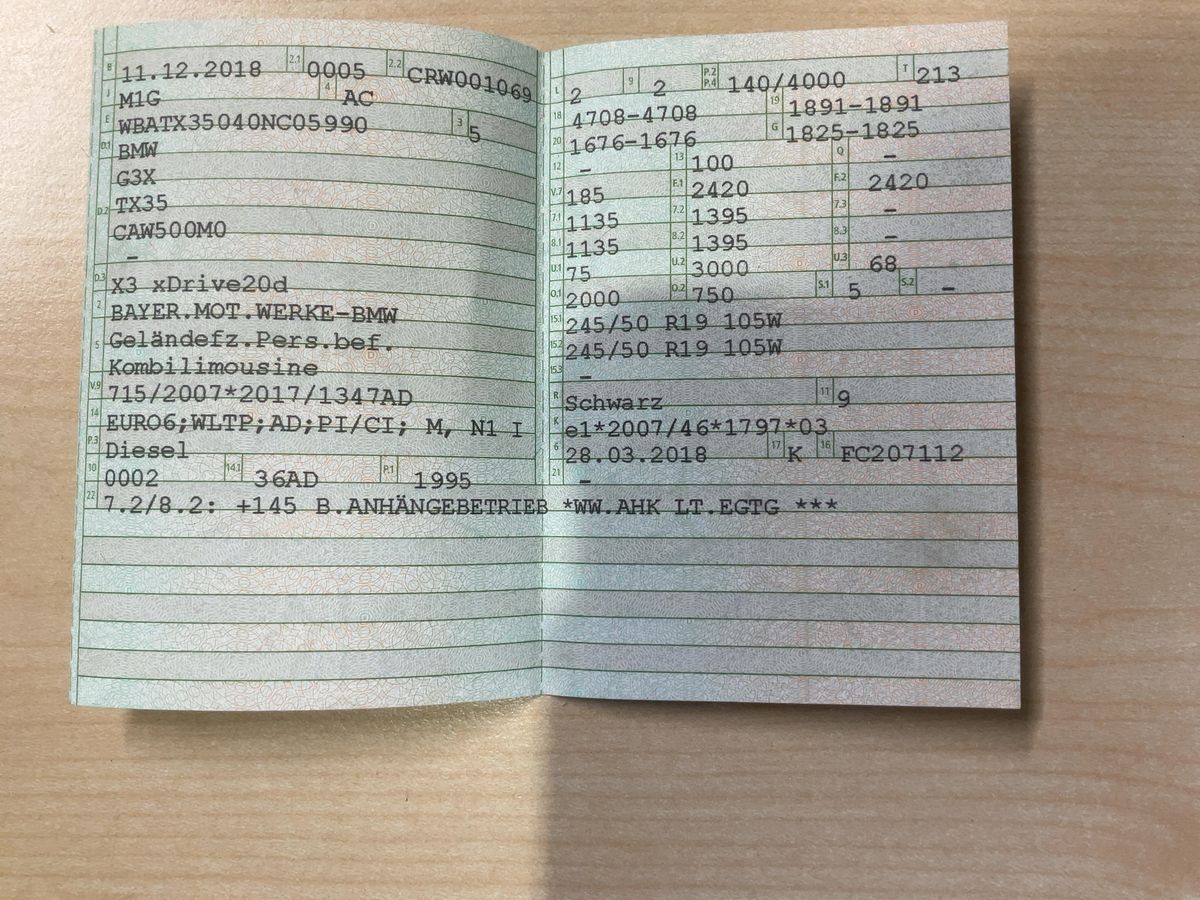 B 11.12.2018 2.1 0005 2.2 CRW001069
J M1G 4 AC
E WBATX35040NC05990 3 5
D.1 BMW
G3X
D.2 TX35
CAW500M0
–
D.3 X3 xDrive20d
2 BAYER.MOT.WERKE-BMW
5 Geländefz.Pers.bef.
Kombilimousine
V.9 715/2007*2017/1347AD
14 EURO6;WLTP;AD;PI/CI; M, N1 I
P.3 Diesel
10 0002 14.1 36AD P.1 1995
22 7.2/8.2: +145 B.ANHÄNGEBETRIEB *WW.AHK LT.EGTG ***
L 2 9 2 P.2 P.4 140/4000 T 213
18 4708-4708 19 1891-1891
20 1676-1676 G 1825-1825
12 – 13 100 Q –
V.7 185 F.1 2420 F.2 2420
7.1 1135 7.2 1395 7.3 –
8.1 1135 8.2 1395 8.3 –
U.1 75 U.2 3000 U.3 68
O.1 2000 O.2 750 S.1 5 S.2 –
15.1 245/50 R19 105W
15.2 245/50 R19 105W
15.3 –
R Schwarz 11 9
K e1*2007/46*1797*03
6 28.03.2018 17 K 16 FC207112
21 –